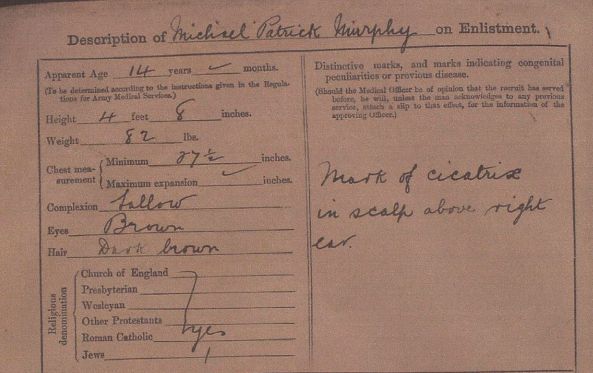 Description of Michael Patrick Murphy on Enlistment.
Apparent Age 14 years ✓ months.
(To be determined according to the instructions given in the Regula-
tions for Army Medical Services.)
Height 4 feet 8 inches.
Weight 82 lbs.
Chest mea-
surement
Minimum 27½ inches.
Maximum expansion ✓ inches.
Complexion Sallow
Eyes Brown
Hair Dark brown
Religious
denomination
Church of England
Presbyterian
Wesleyan
Other Protestants
Roman Catholic yes
Jews
Distinctive marks, and marks indicating congenital
peculiarities or previous disease.
(Should the Medical Officer be of opinion that the recruit has served
before, he will, unless the man acknowledges to any previous
service, attach a slip to that effect, for the information of the
approving Officer.)
Mark of cicatrix
in scalp above right
ear.